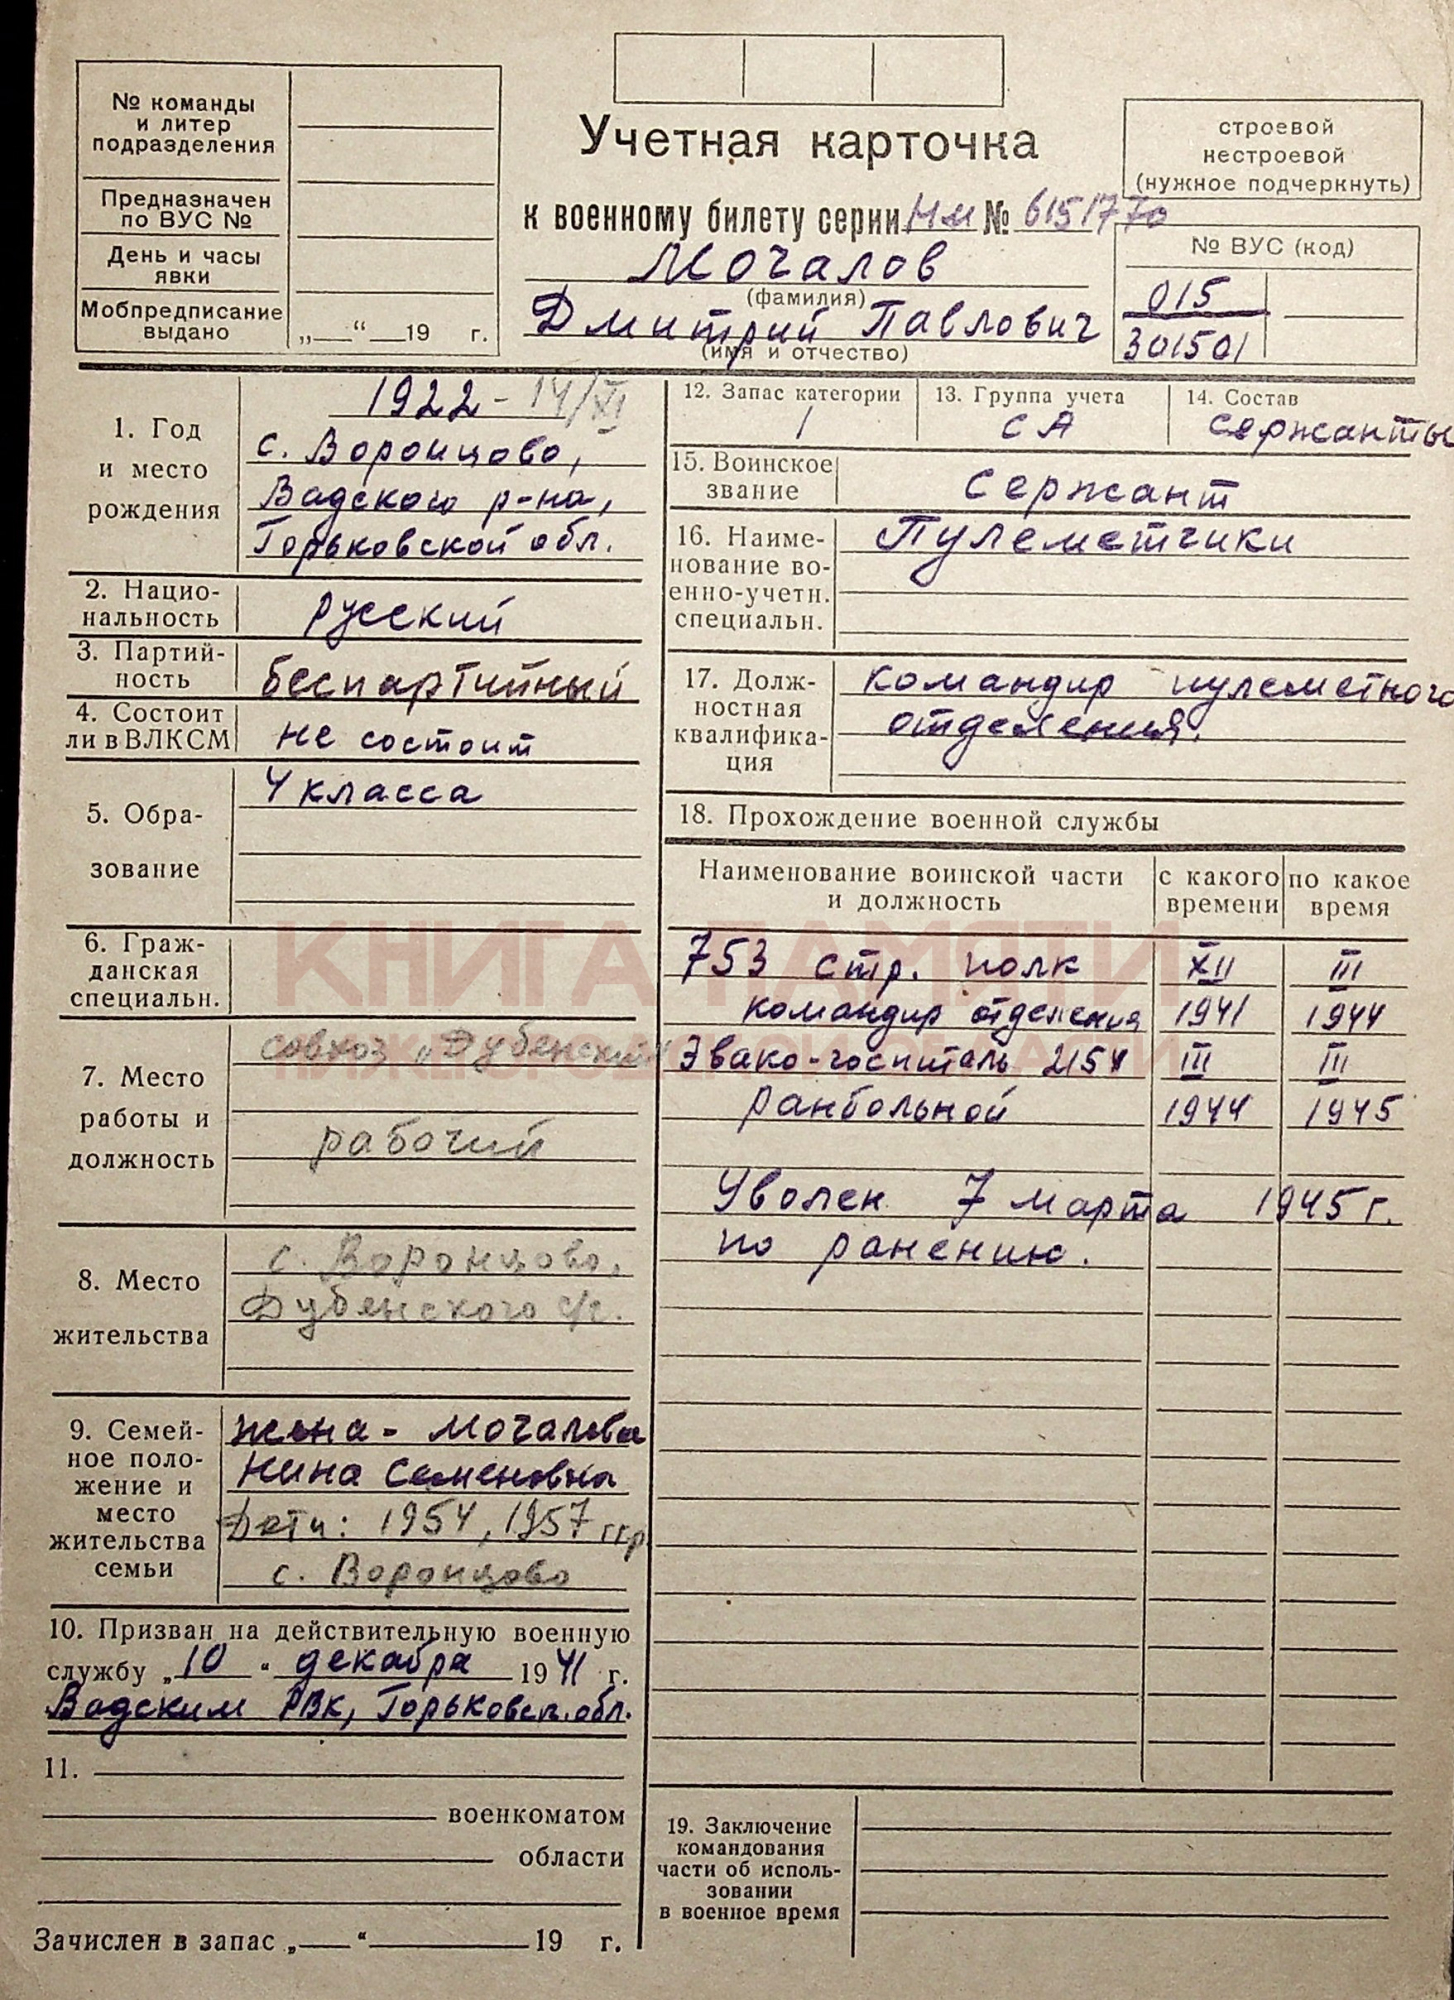 № команды
и литер
подразделения
Предназначен
по ВУС №
День и часы
явки
Мобпредписание
выдано
„ “ 19 г.
Учетная карточка
к военному билету серии НМ № 6151770
Мочалов
(фамилия)
Дмитрий Павлович
(имя и отчество)
строевой
нестроевой
(нужное подчеркнуть)
№ ВУС (код)
015
301501
1. Год
и место
рождения
1922 - 14/XI
с. Воронцово,
Вадского р-на,
Горьковской обл.
2. Нацио-
нальность
русский
3. Партий-
ность
беспартийный
4. Состоит
ли в ВЛКСМ
не состоит
5. Обра-
зование
4 класса
6. Граж-
данская
специальн.
7. Место
работы и
должность
совхоз „Дубенский“
рабочий
8. Место
жительства
с. Воронцово,
Дубенского с/с.
9. Семей-
ное поло-
жение и
место
жительства
семьи
жена - Мочалова
Нина Семеновна
Дети: 1954, 1957 г.г.р.
с. Воронцово
10. Призван на действительную военную
службу „10“ декабря 1941 г.
Вадским РВК, Горьковск. обл.
11.
военкоматом
области
Зачислен в запас „ “ 19 г.
12. Запас категории
1
13. Группа учета
СА
14. Состав
сержанты
15. Воинское
звание
сержант
16. Наиме-
нование во-
енно-учетн.
специальн.
Пулеметчики
17. Долж-
ностная
квалифика-
ция
командир пулеметного
отделения.
18. Прохождение военной службы
Наименование воинской части
и должность
с какого
времени
по какое
время
753 стр. полк XII III
командир отделения 1941 1944
Эвако-госпиталь 2154 III III
ранбольной 1944 1945
Уволен 7 марта 1945 г.
по ранению.
19. Заключение
командования
части об исполь-
зовании
в военное время
КНИГА ПАМЯТИ
НИЖЕГОРОДСКОЙ ОБЛАСТИ